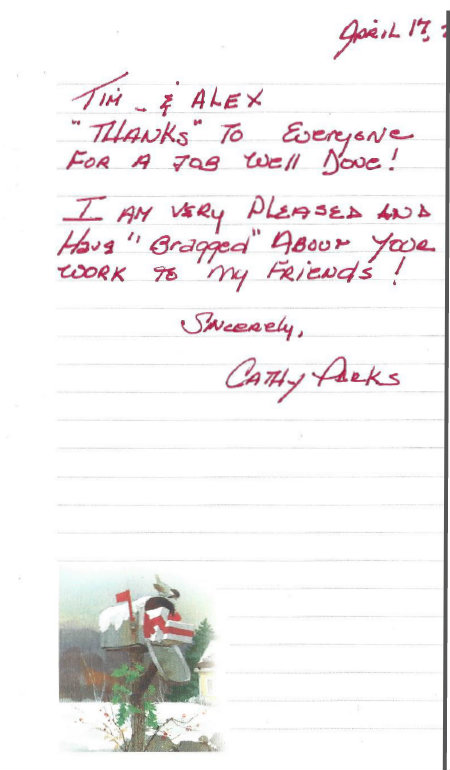 April 17,
Tim & Alex
"Thanks" to Everyone
for a job well done!
I am very pleased and
have "Bragged" about your
work to my friends!
Sincerely,
Cathy Parks